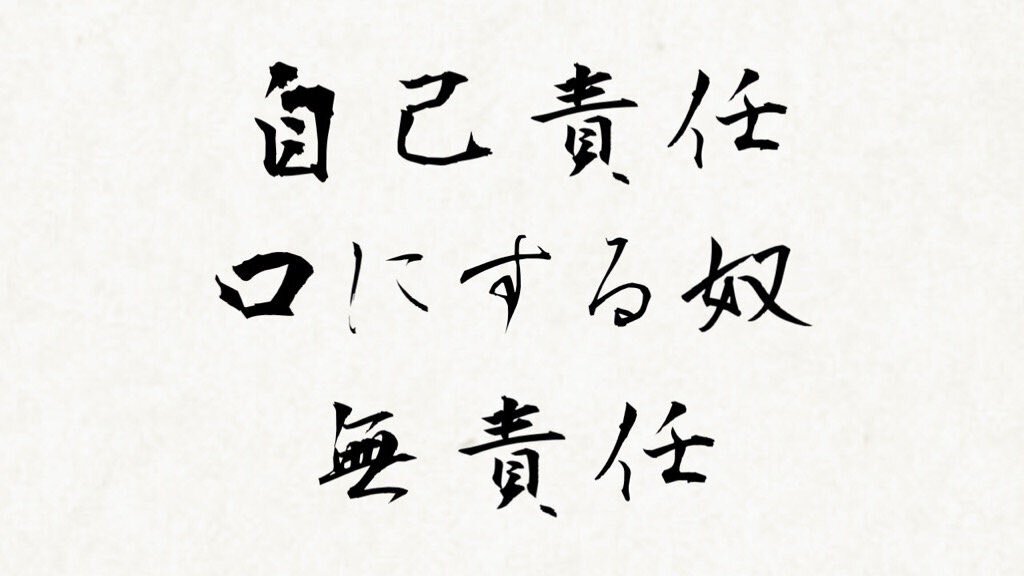 自己責任
口にする奴
無責任